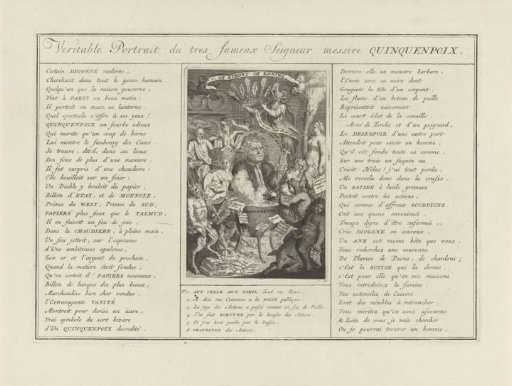 Veritable Portrait du tres fameux Seigneur messire QUINQUENPOIX.
Certain DIOGENE moderne,
Cherchant dans tout le genre humain
Quelqu'un que la raison gouverne,
Vint à PARIS un beau matin;
Il portoit en main sa lanterne.
Quel spectacle s'offre à ses yeux!
QUINQUENPOIX un fourbe odieux
Qui merite qu'un coup de berne
Lui montre le faubourg des Cieux
Se trouve, dit-il, dans ces lieux
Des foux de plus d'une maniere;
Il fut surpris d'une chaudiere;
Elle bouilloit sur un feu:
Un Diable y bruloit du papier,
Billets d'ETAT, et de MONNOIE,
Primes du WEST, Primes du SUD,
PAPIERS plus faux que le TALMUD,
Il en faisoit un feu de joie:
Dans la CHAUDIERE, à pleine main
Un fou jettoit, sur l'esperance
D'une ambitieuse opulence,
Son or et l'argent du prochain.
Quand la matiere étoit fondue;
Qu'en sortoit il? PAPIERS nouveaux,
Billets de banque des plus beaux,
Marchandise bien cher vendue:
L'Extravagante VANITÉ
Montroit pour devise un
Vrai symbole du sort bizare
D'UN QUINQUENPOIX decredité.
Derriere elle un monstre barbare,
L'Envie avec sa noire dent
Grugeoit la tête d'un serpent:
Les flames d'un boteau de paille
Représentoit naïvement
Le court éclat de la canaille
Armé de Torche et d'un poignard,
Le DESESPOIR d'une autre part
Attendoit pour saisir un homme,
Qu'il eut fondu toute sa somme,
Sur une truie un faquin nu
Crioit: Hélas! j'ai tout perdu,
Me voilà donc dans la crasse:
Un SATIRE à laide grimace
Pestoit contre les actions,
Qui comme d'affreux SCORPIONS
Ont une queue envenimée
Troupe digne d'être enfermée
Cria DIOGENE en couroux,
Un ANE est moins bête que vous,
Vous recherchez une couronne
De Plumes de Paons, de chardons;
C'est la SOTISE qui la donne:
Et pour elle par vos maisons
Vous introduisez la famine;
Vos ustenciles de Cuisine
Sont des meubles à retrancher,
Vous meritez qu'on vous assomme
Loin de vous je vais chercher
Ou je pourrai trouver un homme.
1. AUT CESAR AUT NIHIL, Tout ou Rien.
2. Je dois ma Couronne à la folie publique.
3. Le jeu des Actions a passé comme un feu de Paille.
4. J'ai fait FORTUNE par la hausse des Actions.
5. Et j'ai tout perdu par la baisse.
6. des Actions.